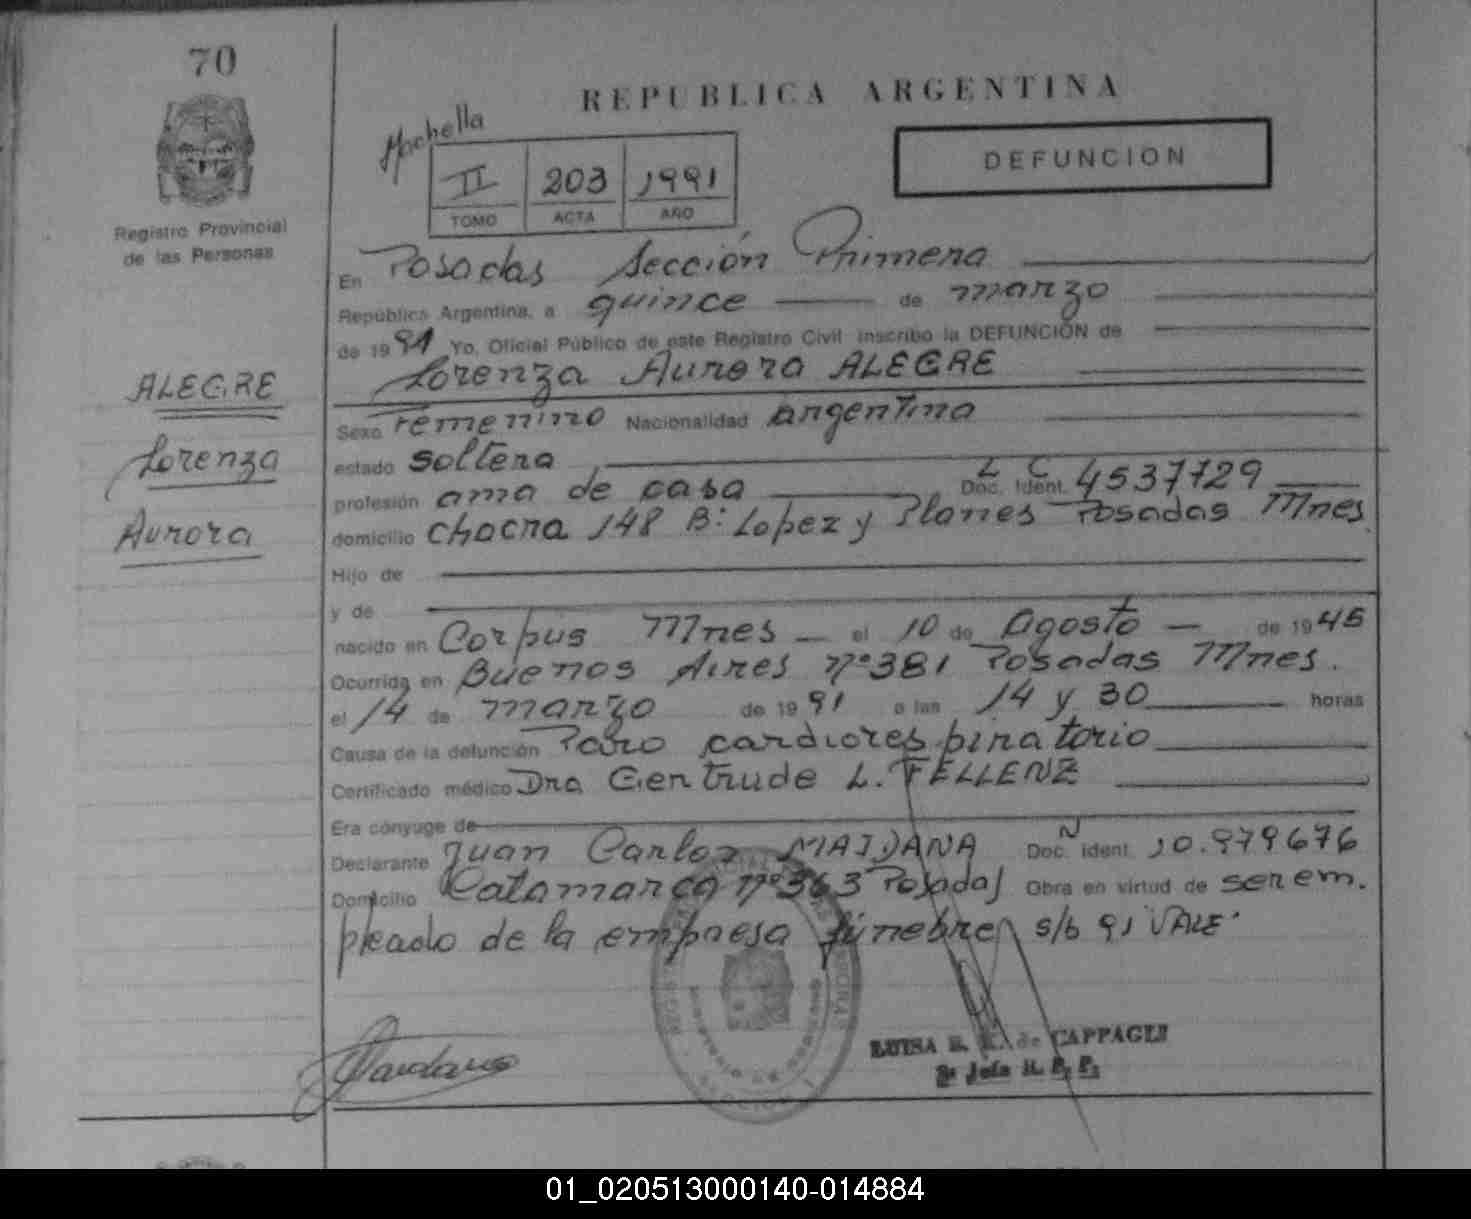 70
REPUBLICA ARGENTINA
Machella
II 203 1991
TOMO ACTA AÑO
DEFUNCION
Registro Provincial
de las Personas
ALEGRE
Lorenza
Aurora
En Posadas Sección Primera
República Argentina, a quince de marzo
de 1991 Yo, Oficial Público de este Registro Civil inscribo la DEFUNCIÓN de
Lorenza Aurora ALEGRE
Sexo Femenino Nacionalidad argentina
estado soltera
profesión ama de casa Doc. Ident. L C 4537729
domicilio chacra 148 B: Lopez y Planes Posadas Mnes
Hijo de
y de
nacido en Corpus Mnes el 10 de Agosto de 1945
Ocurrida en Buenos Aires nº 381 Posadas Mnes.
el 14 de marzo de 1991 a las 14 y 30 horas
Causa de la defunción Paro cardiorespiratorio
Certificado médico Dra Gertrude L. FELLENZ
Era cónyuge de
Declarante Juan Carlos MAIDANA Doc. Ident. Ñ 10.979676
Domicilio Catamarca nº 363 Posadas Obra en virtud de ser em.
pleado de la empresa fúnebre s/b 91 VALE
LUISA de CAPPAGLI
2ª Jefe
01_020513000140-014884